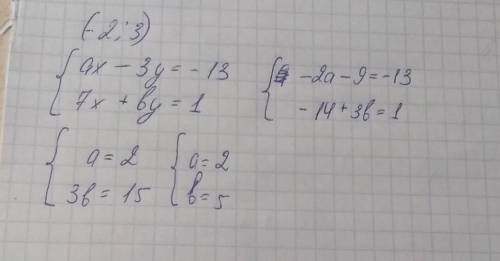 (-2; 3)
{ ax - 3y = -13
7x + by = 1
{ -2a - 9 = -13
-14 + 3b = 1
{ a = 2
3b = 15
{ a = 2
b = 5